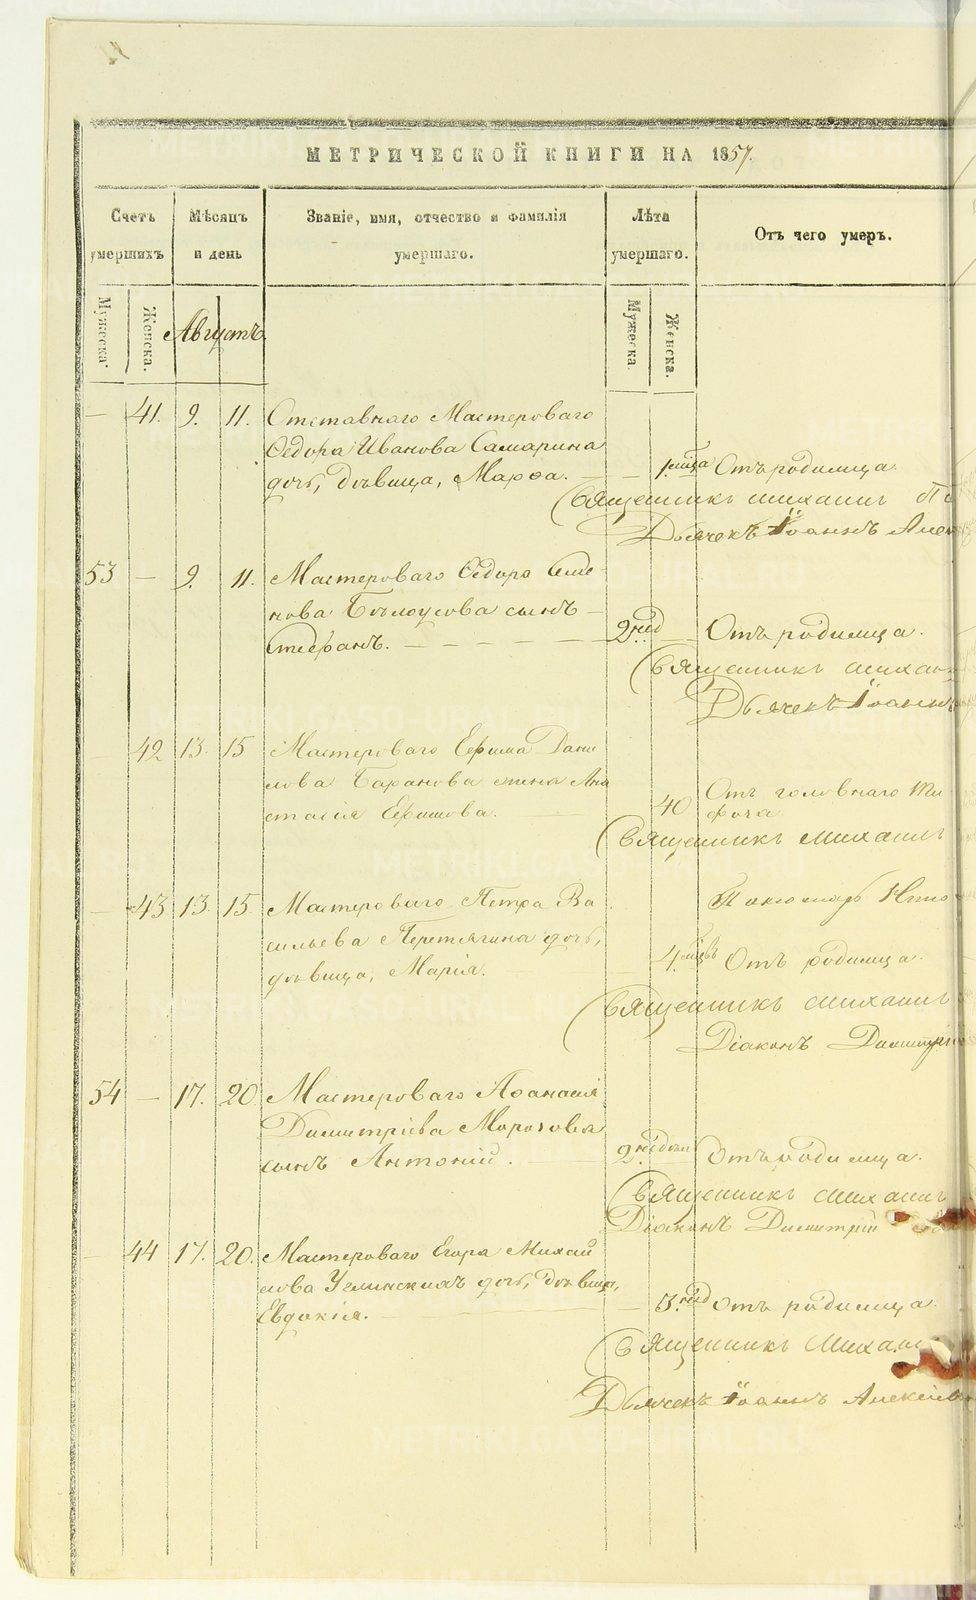 МЕТРИЧЕСКОЙ КНИГИ НА 1857.
Счетъ умершихъ
Мѣсяцъ и день
Званіе, имя, отчество и фамилія умершаго.
Лѣта умершаго.
Отъ чего умеръ.
Мужеска.
Женска.
Мужеска.
Женска.
Августъ.
— 41. 9. 11. Отставнаго Мастероваго
Ѳедора Иванова Самарина
дочь, дѣвица, Марѳа. — 1. мѣсяца Отъ родимца.
Священникъ Михаилъ
Дьячекъ Іоаннъ
53 — 9. 11. Мастероваго Ѳедора Семе-
нова Бѣлоусова сынъ —
Стефанъ. — — — — — 2 нед Отъ родимца.
Священникъ
Дьячекъ Іоаннъ
42 13. 15 Мастероваго Ефима Дани
лова Баранова жена Ана
стасія Ефимова. — 40 Отъ головнаго
Священникъ Михаилъ
— 43 13. 15 Мастероваго Петра Ва
сильева Перетягина дочь,
дѣвица, Марія. 4. Отъ родимца.
Пономарь
Священникъ Михаилъ
Діаконъ Димитрій
54 — 17. 20 Мастероваго Аѳанасія
Димитріева Морозова
сынъ Антоній. — 2. Отъ родимца.
Священникъ Михаилъ
Діаконъ Димитрій
— 44 17. 20. Мастероваго Егора Михай
лова дочь, дѣвица,
Евдокія. — 3. нед Отъ родимца.
Священникъ
Дьячекъ Іоаннъ
METRIKI.GASO-URAL.RU